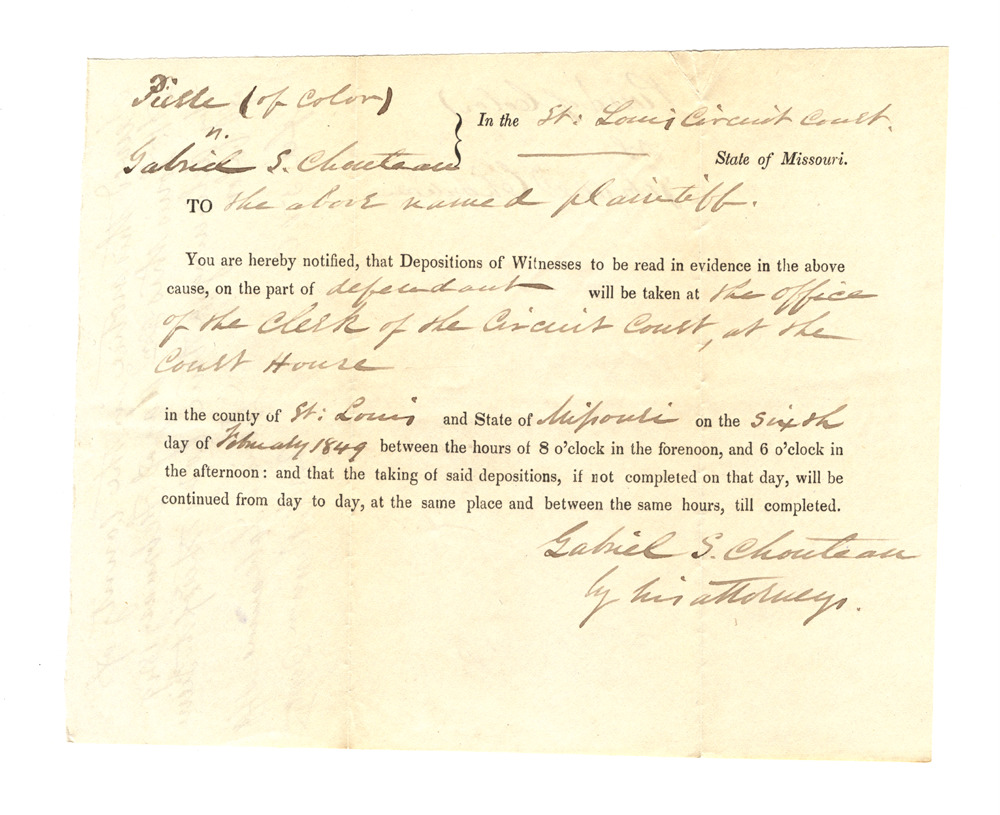 Pierre (of color)
vs.
Gabriel S. Chouteau
In the St: Louis Circuit Court.
State of Missouri.
TO the above named plaintiff.
You are hereby notified, that Depositions of Witnesses to be read in evidence in the above
cause, on the part of defendant will be taken at the office
of the Clerk of the Circuit Court, at the
Court House
in the county of St: Louis and State of Missouri on the sixth
day of February 1849 between the hours of 8 o'clock in the forenoon, and 6 o'clock in
the afternoon: and that the taking of said depositions, if not completed on that day, will be
continued from day to day, at the same place and between the same hours, till completed.
Gabriel S. Chouteau
by his attorneys.